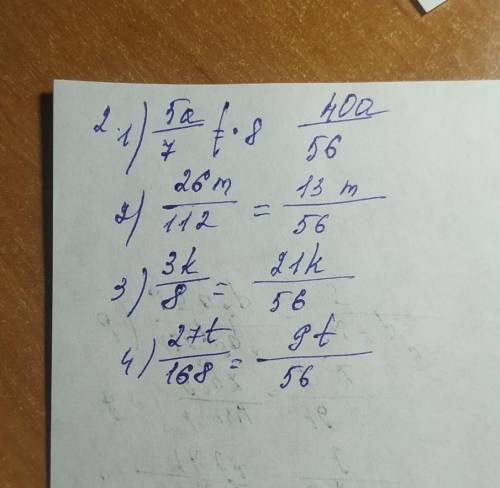 2.1) 5a/7 · 8 40a/56
2) 26m/112 = 13m/56
3) 3k/8 = 21k/56
4) 27t/168 = 9t/56